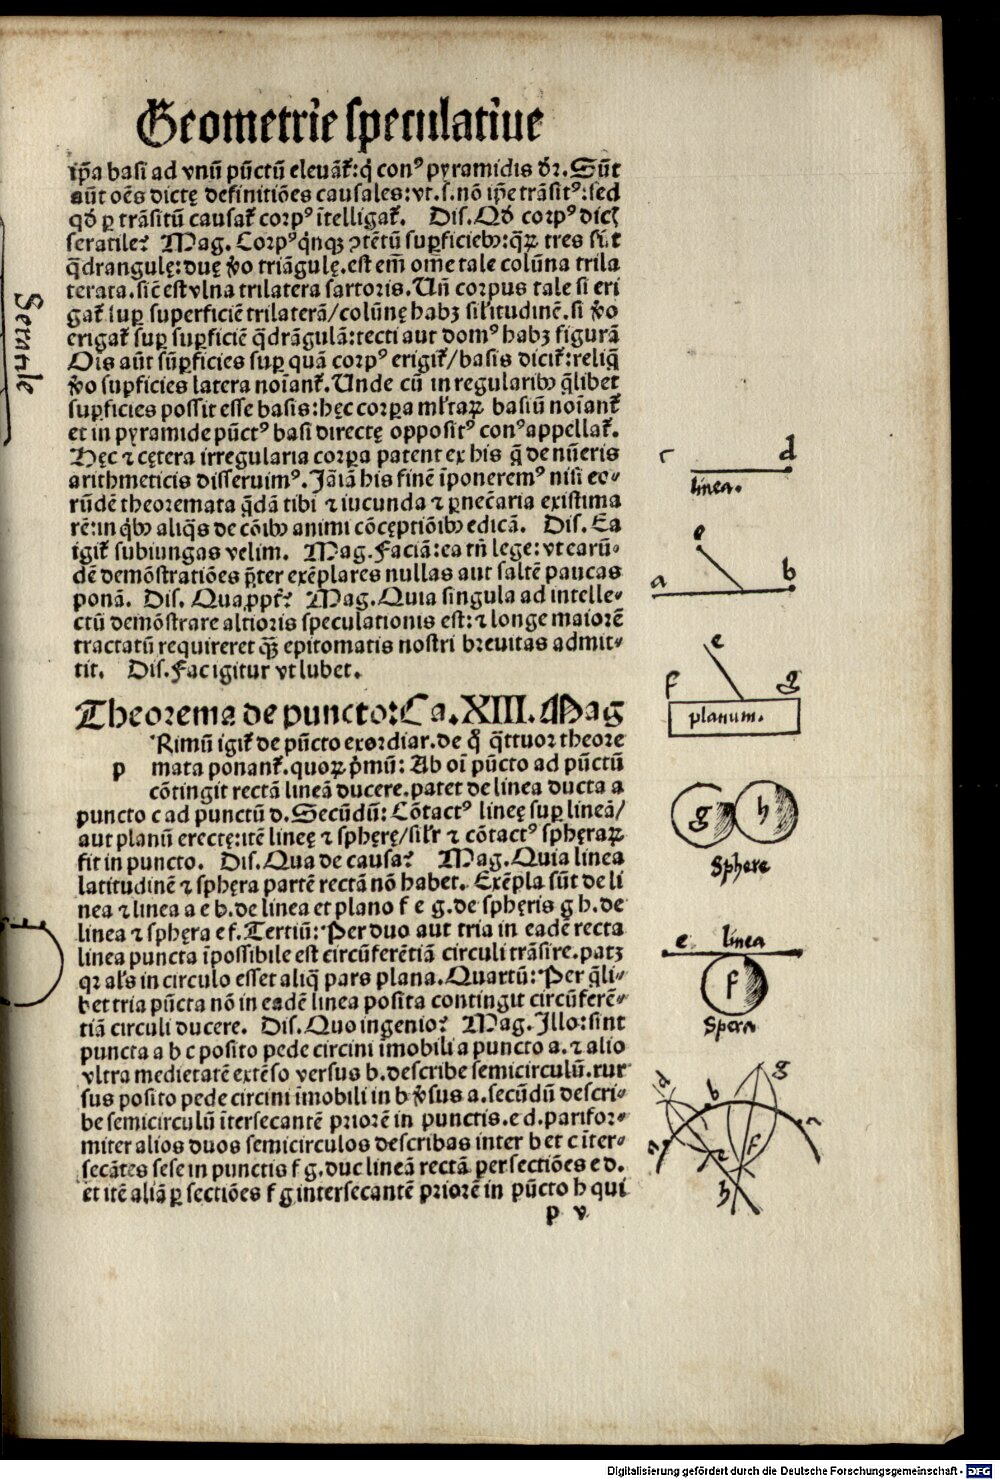 Geometrie speculatiue
ip̄a basi ad vnū pūctū eleuat̄: q̄ con⁹ pyramidis dr̄. Sūt
aūt oēs dictę definitiōes causales: vt. s. nō ip̄e trāsit⁹: sed
qd̄ ꝑ trāsitū causat̄ corp⁹ ītelligat̄. Dis. Qd̄ corp⁹ dicis
seratile? Mag. Corp⁹ q̇nqꝫ ↄtētū suꝑficiebꝰ: q̄ꝝ tres sūt
q̄drangulę: duę ṽo triāgulę. est em̄ om̄e tale colūna trila
terata. sic̄ est vlna trilatera sartoris. Un̄ corpus tale si eri
gat̄ suꝑ superficiē trilaterā / colūnę habꝫ sil'itudinē. si ṽo
erigat̄ suꝑ suꝑficiē q̄drāgulā: tecti aut dom⁹ habꝫ figurā
Ois aūt suꝑficies suꝑ quā corp⁹ erigit̄ / basis dicit̄: reliq̄
ṽo suꝑficies latera noīant̄. Unde cū in regularibꝰ q̄libet
suꝑficies possit esse basis: hęc corꝑa ml'taꝝ basiū noīant̄
et in pyramide pūct⁹ basi directę opposit⁹ con⁹ appellat̄.
Hęc ⁊ cętera irregularia corꝑa patent ex his q̄ de nūeris
arithmeticis disseruim⁹. Jā iā his finē īponerem⁹ nisi eo-
rūdē theoremata q̄dā tibi ⁊ iucunda ⁊ ꝑnec̄aria existima
rē: in q̇bꝰ aliq̄s de cōibꝰ animi cōcęptiōibꝰ edicā. Dis. Ea
igit̄ subiungas velim. Mag. Faciā: ea tn̄ lege: vt earū-
dē demōstratiōes p̄ter exēplares nullas aut saltē paucas
ponā. Dis. Qua ꝓpt̄? Mag. Quia singula ad intelle-
ctū demōstrare altioris speculationis est: ⁊ longe maiorē
tractatū requireret q̄ꝫ epitomatis nostri breuitas admit-
tit. Dis. Fac igitur vt lubet.
Theorema de puncto: Ca. XIII. Mag
p Rimū igit̄ de pūcto exordiar. de q̊ q̄ttuor theore
mata ponant̄. quoꝝ p̄mū: Ab oī pūcto ad pūctū
cōtingit rectā lineā ducere. patet de linea ducta a
puncto c ad punctū d. Secūdū: Cōtact⁹ linęe suꝑ lineā /
aut planū erectę: itē linęe ⁊ sphęrę / sil'r ⁊ cōtact⁹ sphęraꝝ
fit in puncto. Dis. Qua de causa? Mag. Quia linea
latitudinē ⁊ sphęra partē rectā nō habet. Exēpla sūt de li
nea ⁊ linea a e b. de linea et plano f e g. de sphęris g h. de
linea ⁊ sphęra e f. Tertiū: Per duo aut tria in eadē recta
linea puncta īpossibile est circūferētiā circuli trāsire. patꝫ
qꝛ al's in circulo esset aliq̄ pars plana. Quartū: Per q̄li-
bet tria pūcta nō in eadē linea posita contingit circūferē-
tiā circuli ducere. Dis. Quo ingenio? Mag. Jllo: sint
puncta a b c posito pede circini imobili a puncto a. ⁊ alio
vltra medietatē extēso versus b. describe semicirculū. rur
sus posito pede circini īmobili in b ṽsus a. secūdū descri-
be semicirculū ītersecantē priorē in punctis. e d. parifor-
miter alios duos semicirculos describas inter b et c īter-
secātes sese in punctis f g. duc lineā rectā per sectiōes e d.
et itē aliā ꝑ sectiōes f g intersecantē priorē in pūcto h qui
p v
Seratile
c d
linea.
e
a b
e
f g
planum.
g h
Sphere
e linea
f
Spera
d b g
a c
e f
h
Digitalisierung gefördert durch die Deutsche Forschungsgemeinschaft - DFG